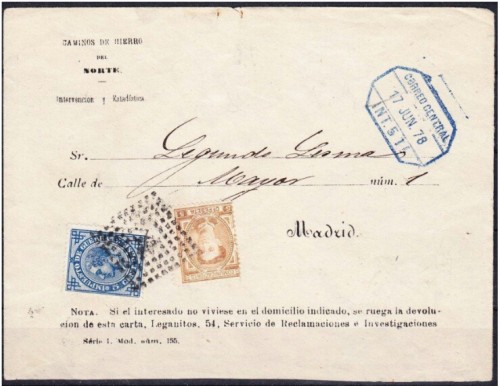 CAMINOS DE HIERRO
DEL
NORTE
Intervencion y Estadística.
CORREO CENTRAL
17 JUN. 78
INT. 5 1
Sr. Segundo Lesma
Calle de Mayor núm. 1
Madrid.
IMPUESTO DE GUERRA
NOTA. Si el interesado no viviese en el domicilio indicado, se ruega la devolu-
cion de esta carta, Leganitos, 54, Servicio de Reclamaciones e Investigaciones
Série I. Mod. núm. 155.